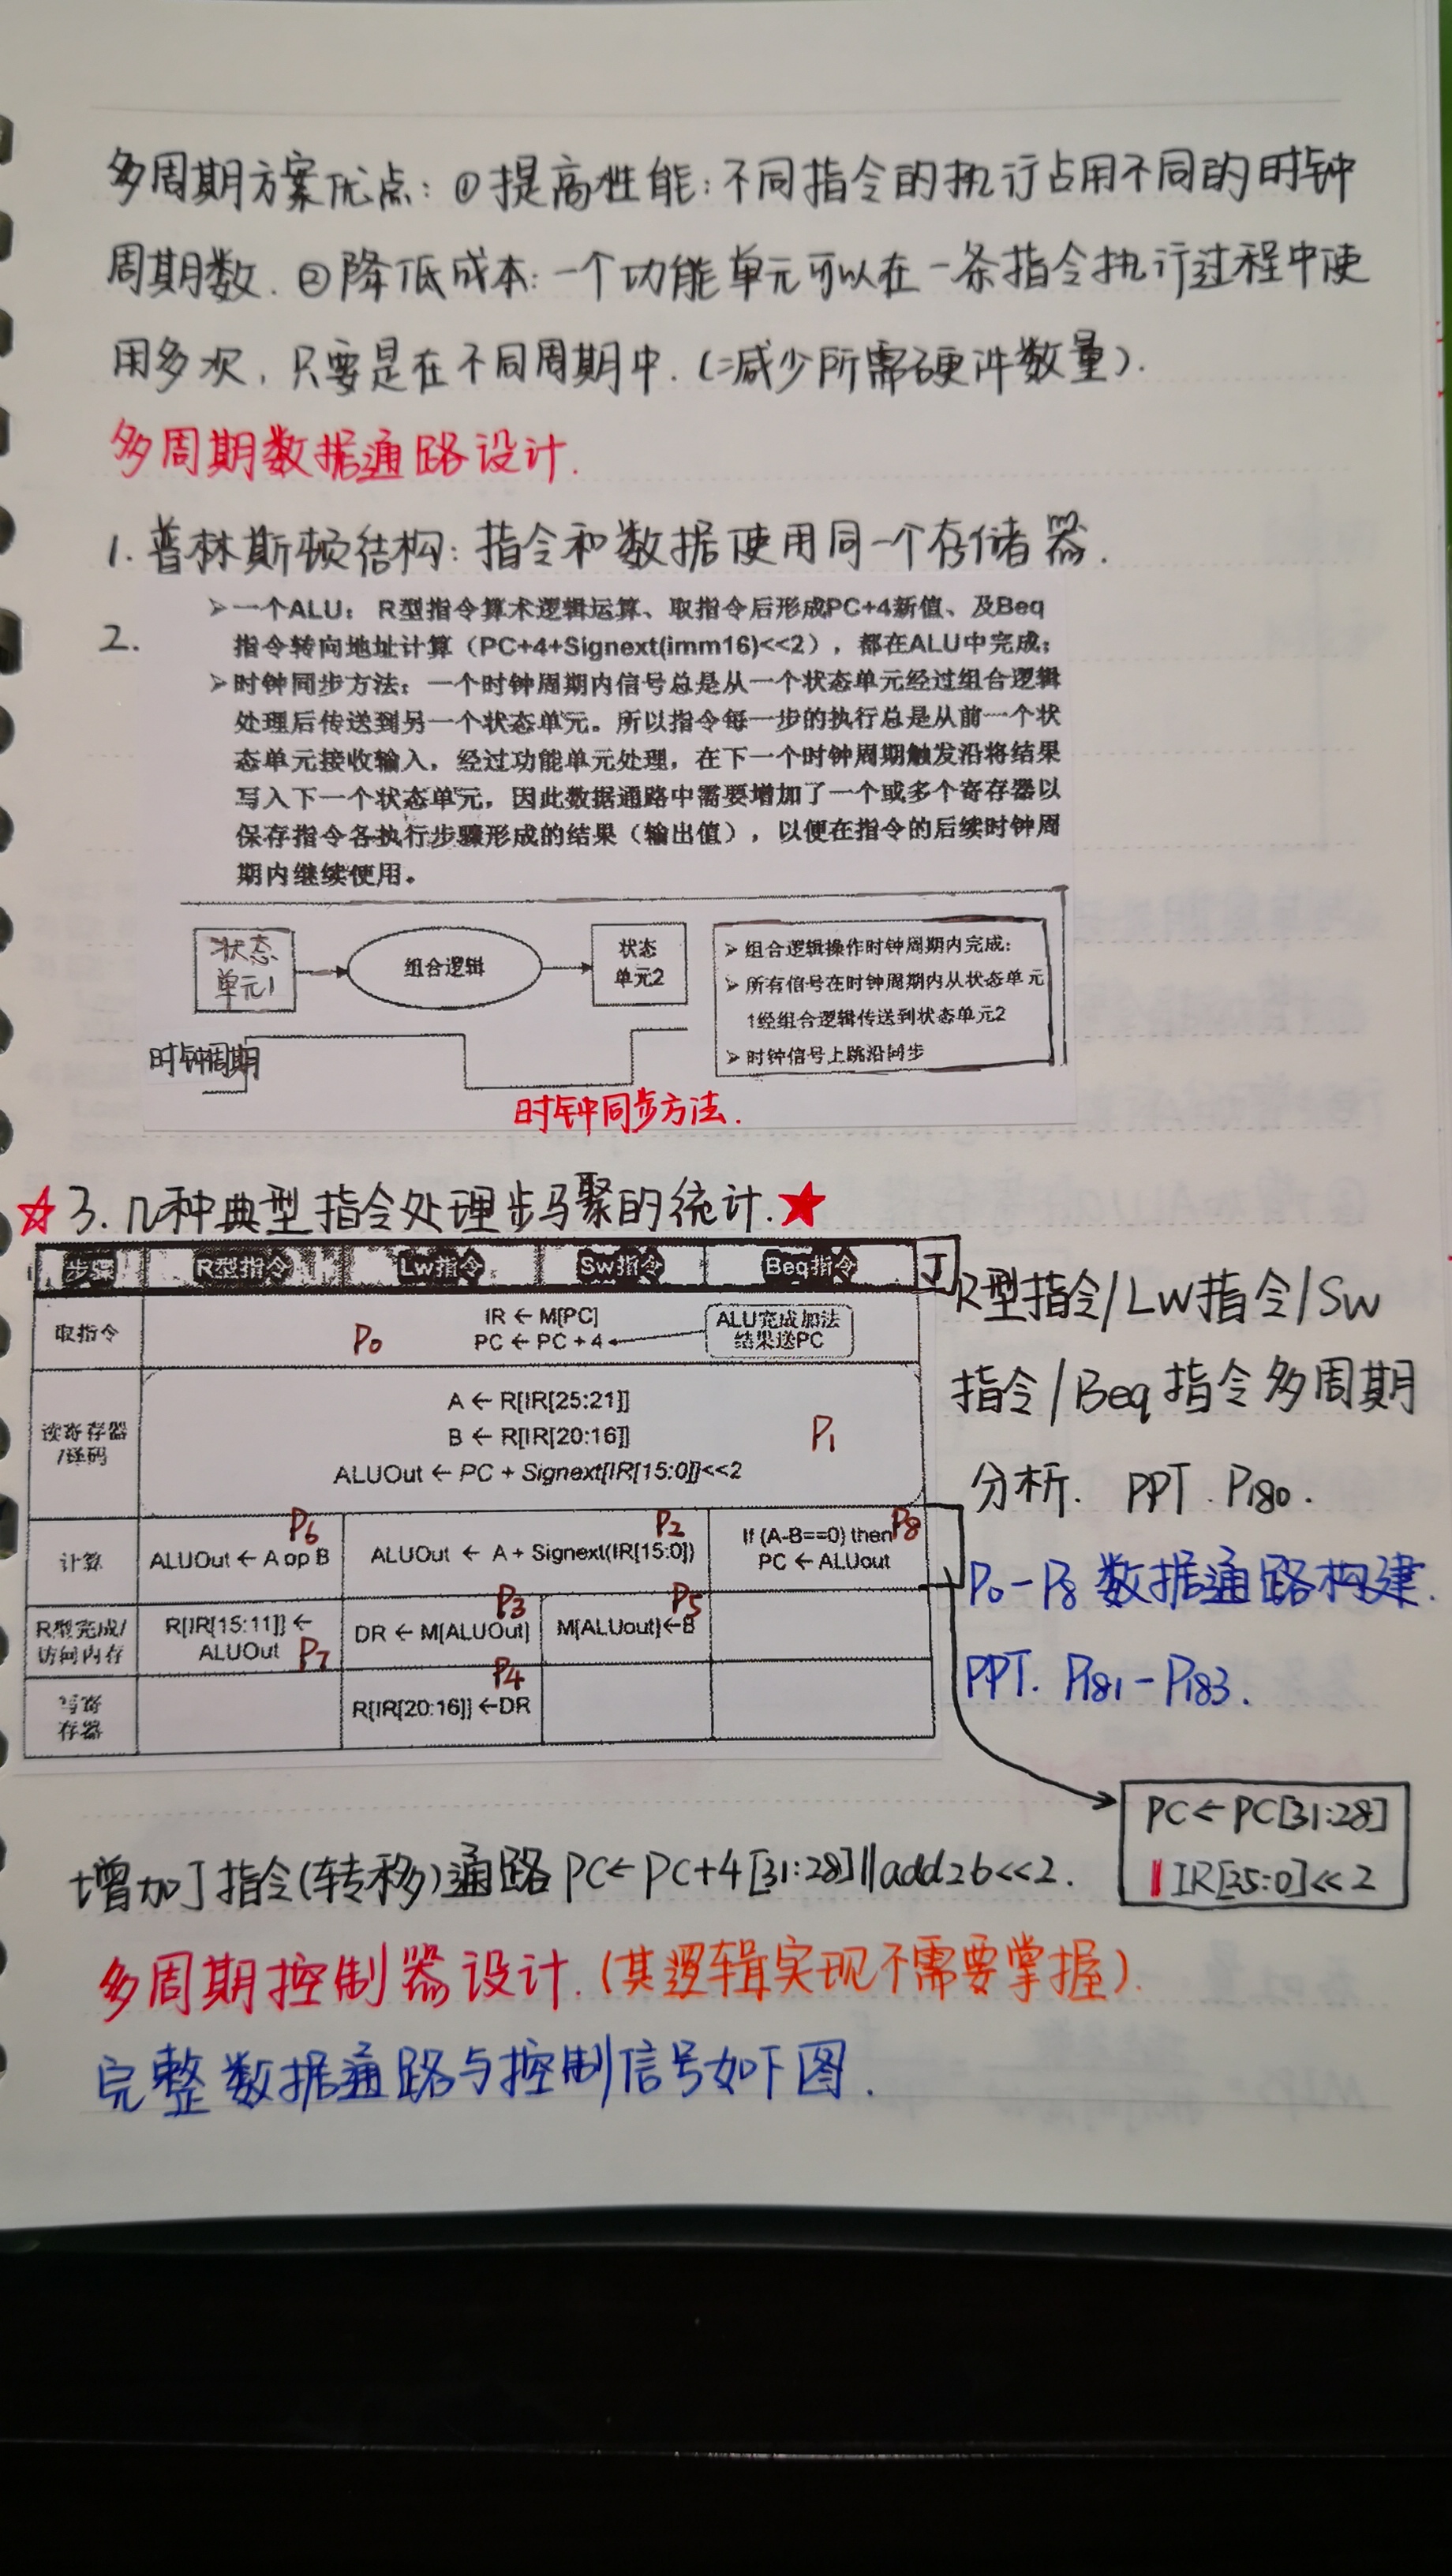 多周期方案优点：①提高性能：不同指令的执行占用不同的时钟
周期数．②降低成本：一个功能单元可以在一条指令执行过程中使
用多次，只要是在不同周期中．(减少所需硬件数量)．
多周期数据通路设计．
1. 普林斯顿结构：指令和数据使用同一个存储器．
2.
➢一个ALU： R型指令算术逻辑运算、取指令后形成PC+4新值、及Beq
指令转向地址计算（PC+4+Signext(imm16)<<2），都在ALU中完成；
➢时钟同步方法：一个时钟周期内信号总是从一个状态单元经过组合逻辑
处理后传送到另一个状态单元。所以指令每一步的执行总是从前一个状
态单元接收输入，经过功能单元处理，在下一个时钟周期触发沿将结果
写入下一个状态单元，因此数据通路中需要增加了一个或多个寄存器以
保存指令各执行步骤形成的结果（输出值），以便在指令的后续时钟周
期内继续使用。
状态
单元1
组合逻辑
状态
单元2
➢ 组合逻辑操作时钟周期内完成；
➢ 所有信号在时钟周期内从状态单元
1经组合逻辑传送到状态单元2
➢ 时钟信号上跳沿同步
时钟周期
时钟同步方法．
☆3. 几种典型指令处理步骤的统计．★
步骤 R型指令 Lw指令 Sw指令 Beq指令 J
取指令
P0
IR ← M[PC]
PC ← PC + 4
ALU完成加法
结果送PC
读寄存器
/译码
A ← R[IR[25:21]]
B ← R[IR[20:16]]
ALUOut ← PC + Signext[IR[15:0]]<<2
P1
计算
P6
ALUOut ← A op B
P2
ALUOut ← A + Signext(IR[15:0])
P8
If (A-B==0) then
PC ← ALUout
R型完成/
访问内存
R[IR[15:11]] ←
ALUOut P7
P3
DR ← M[ALUOut]
P5
M[ALUout]←B
写寄
存器
P4
R[IR[20:16]] ←DR
R型指令/LW指令/SW
指令/Beq指令多周期
分析． PPT. P180.
P0-P8 数据通路构建．
PPT. P181-P183.
PC←PC[31:28]
|| IR[25:0]<<2
增加J指令(转移)通路 PC← PC+4[31:28]||add26<<2.
多周期控制器设计．(其逻辑实现不需要掌握)．
完整数据通路与控制信号如下图．